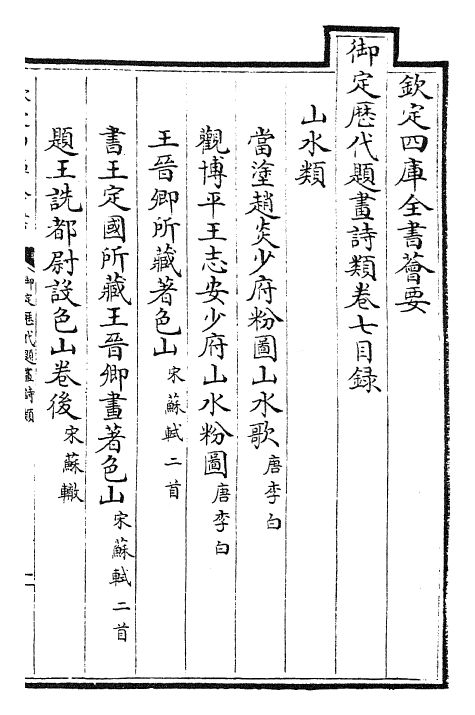 欽定四庫全書薈要
御定歴代題畫詩類卷七目録
山水類
當塗趙炎少府粉圖山水歌 唐李白
觀博平王志安少府山水粉圖 唐李白
王晉卿所藏著色山 宋蘇軾二首
書王定國所藏王晉卿畫著色山 宋蘇軾二首
題王詵都尉設色山卷後 宋蘇轍
御定歴代題畫詩類
一